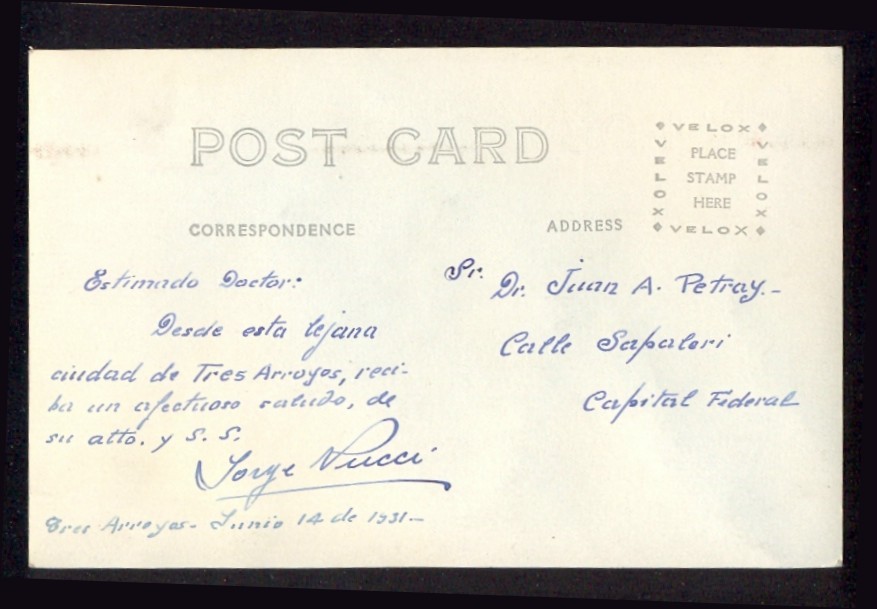 POST CARD
VELOX
VELOX
PLACE
STAMP
HERE
VELOX
VELOX
CORRESPONDENCE
ADDRESS
Estimado Doctor:
Desde esta lejana
ciudad de Tres Arroyos, reci-
ba un afectuoso saludo, de
su atto. y S. S.
Jorge Nucci
Tres Arroyos- Junio 14 de 1931-
Sr. Dr. Juan A. Petray.-
Calle Sapaleri
Capital Federal